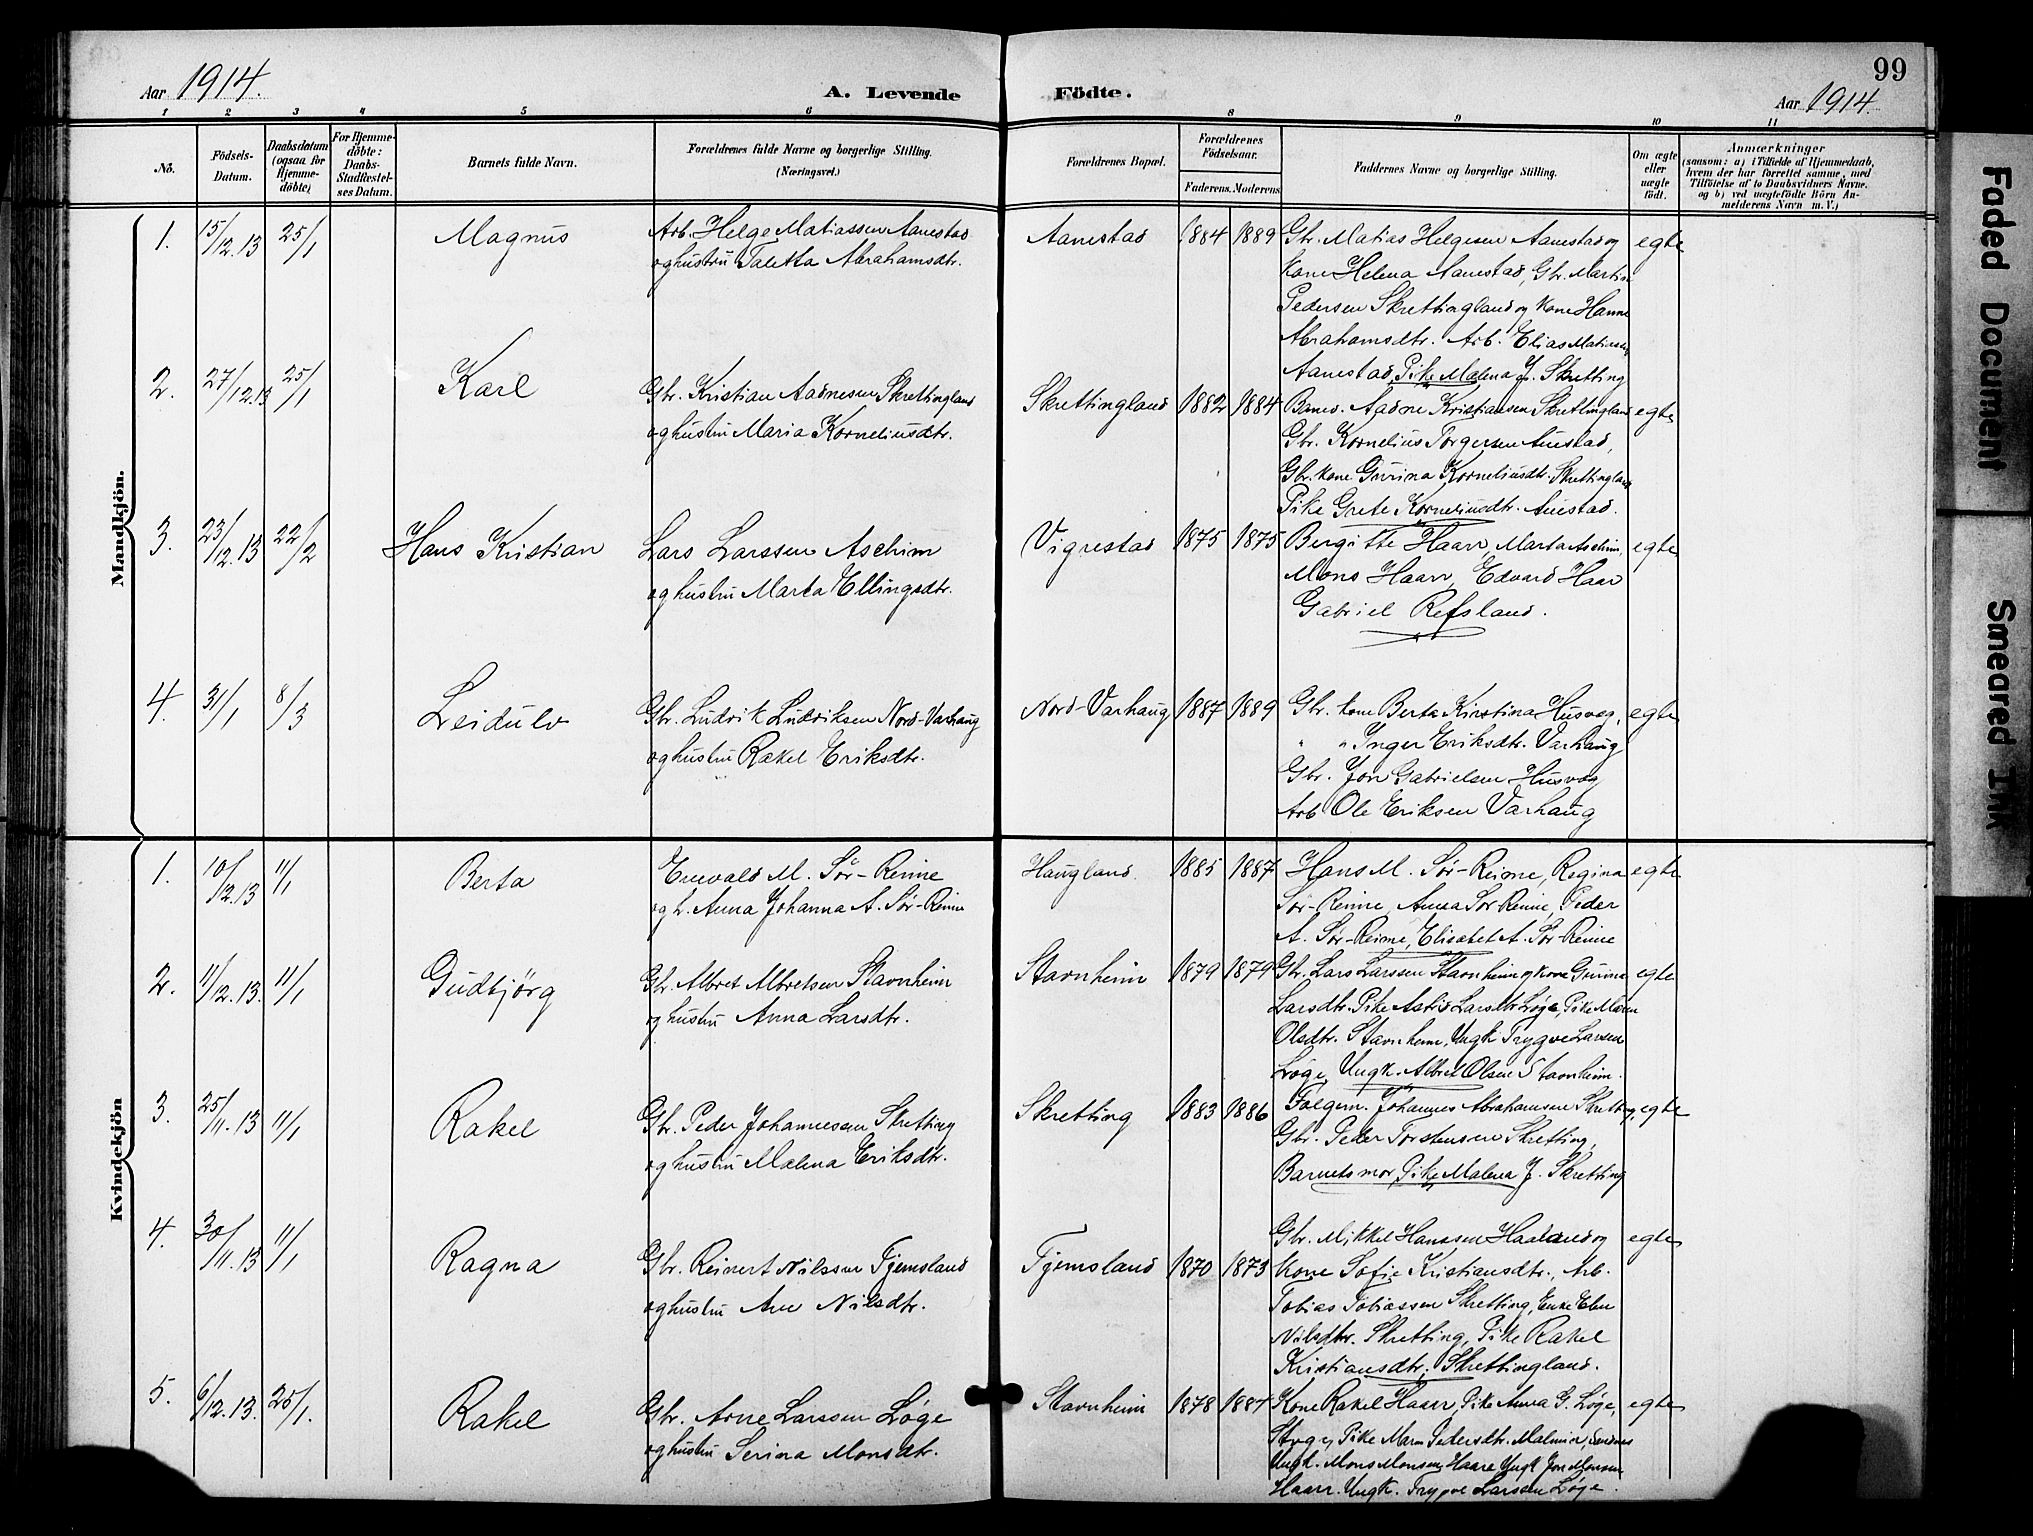 99
Aar 1914.
A. Levende Födte.
Aar 1914.
1 2 3 4 5 6 8 9 10 11
No.
Födsels-Datum.
Daabsdatum (ogsaa for Hjemmedöbte)
For Hjemmedöbte: Daabs-Stadfæstelses Datum.
Barnets fulde Navn.
Forældrenes fulde Navne og borgerlige Stilling.
(Næringsvei.)
Forældrenes Bopæl.
Forældrenes Födselsaar.
Faderens. Moderens.
Faddernes Navne og borgerlige Stilling.
Om ægte eller uægte födt.
Anmærkninger
(saasom: a) i Tilfælde af Hjemmedaab,
hvem der har forrettet samme, med
Tilföielse af to Daabsvidners Navne.
og b) ved uægtefödte Börn An-
melderens Navn m. V.)
Mandkjön.
1. 15/12.13 25/1 Magnus
Arb. Helge Matiassen Aanestad
og hustru Taletta Abrahamsdtr.
Aanestad 1884 1889
Gbr. Matias Helgesen Aanestad og
Kone Helena Aanestad, Gbr. Martin
Pedersen Skrettingland og Kone Hanne
Abrahamsdtr. Arb. Elias Matiassen
Aanestad, Pike Malena J. Skretting
egte
2. 27/12.13 25/1 Karl
Gbr. Kristian Aadnesen Skrettingland
og hustru Maria Korneliusdtr.
Skrettingland 1882 1884
Aadne Kristiansen Skrettingland
Gbr. Kornelius Torgersen Auestad,
Gbr. kone Gurina Korneliusdtr. Skrettingland
Pike Grete Korneliusdtr. Auestad.
egte
3. 23/12.13 22/2 Hans Kristian
Lars Larssen Aschim
og hustru Marta Ellingsdtr.
Vigrestad 1875 1875
Bergitte Haarr, Marta Aschim,
Mons Haarr, Edvard Haar
Gabriel Refsland.
egte
4. 31/1 8/3 Leidulv
Gbr. Ludvik Ludviksen Nord-Varhaug
og hustru Rakel Eriksdtr.
Nord-Varhaug 1887 1889
Gbr. kone Berta Kirstina Husveg,
" " Inger Eriksdtr. Varhaug
Gbr. Jon Gabrielsen Husveg
Arb Ole Eriksen Varhaug
egte
Kvindekjön
1. 10/12.13 11/1 Berta
Enevald M. Sör-Reime
og h. Anna Johanna A. Sör-Reime
Haugland. 1885 1887
Hans M. Sör-Reime, Regina
Sör-Reime, Anna Sör Reime, Peder
A. Sör-Reime, Elisabet A. Sör-Reime
egte
2. 11/12.13. 11/1 Gudbjörg
Gbr. Albret Albretsen Stavnheim
og hustru Anna Larsdtr.
Stavnheim 1879 1879
Gbr. Lars Larssen Stavnheim og kone Gurina
Larsdtr. Pike Astrid Larsdtr Löge, Pike Maren
Olsdtr. Stavnheim, Ungk Trygve Larsen
Löge, Ungk. Albret Olsen Stavnheim.
egte
3. 25/11.13 11/1 Rakel
Gbr. Peder Johannessen Skretting
og hustru Malena Eriksdtr.
Skretting 1883 1886
Folgem. Johannes Abrahamsen Skretting,
Gbr. Peder Torstensen Skretting,
Barnets mor, Pike Malena J. Skretting
egte
4. 30/11.13 11/1 Ragna
Gbr. Reinert Nilssen Tjemsland
og hustru Ane Nilsdtr.
Tjemsland 1870 1873
Gbr. Mikkel Hanssen Haaland og
Kone Sofie Kristiansdtr., Arb.
Tobias Tobiassen Skretting, Enke Elen
Nilsdtr. Skretting, Pike Rakel
Kristiansdtr. Skrettingland.
egte
5. 6/12.13. 25/1. Rakel
Gbr. Arne Larssen Löge
og hustru Serina Monsdtr.
Stavnheim 1878 1887
Kone Rakel Haarr, Pike Anna G. Löge,
Pike Maren Pedersdtr. Malmin, Sandnes
Ungk. Mons Monsen Haarr Ungk Jon Monsen
Haarr. Ungk. Trygve Larssen Löge.
egte
Faded Document
Smeared Ink